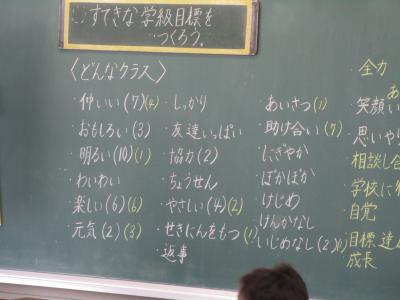 すてきな学級目標を
つくろう。
〈どんなクラス〉
・仲いい(7)(4)
・おもしろい(3)
・明るい(10)(1)
・わいわい
・楽しい(6)(6)
・元気(2)(3)
・しっかり
・友達いっぱい
・協力(2)
・ちょうせん
・やさしい(4)(2)
・せきにんをもつ(1)
・返事
・あいさつ(1)
・助け合い(7)
・にぎやか
・ぽかぽか
・けじめ
・けんかなし
・いじめなし(2)
・全力
・笑顔い
・思いやり
・相談し合
・学校に
・自覚
・目標達
成長